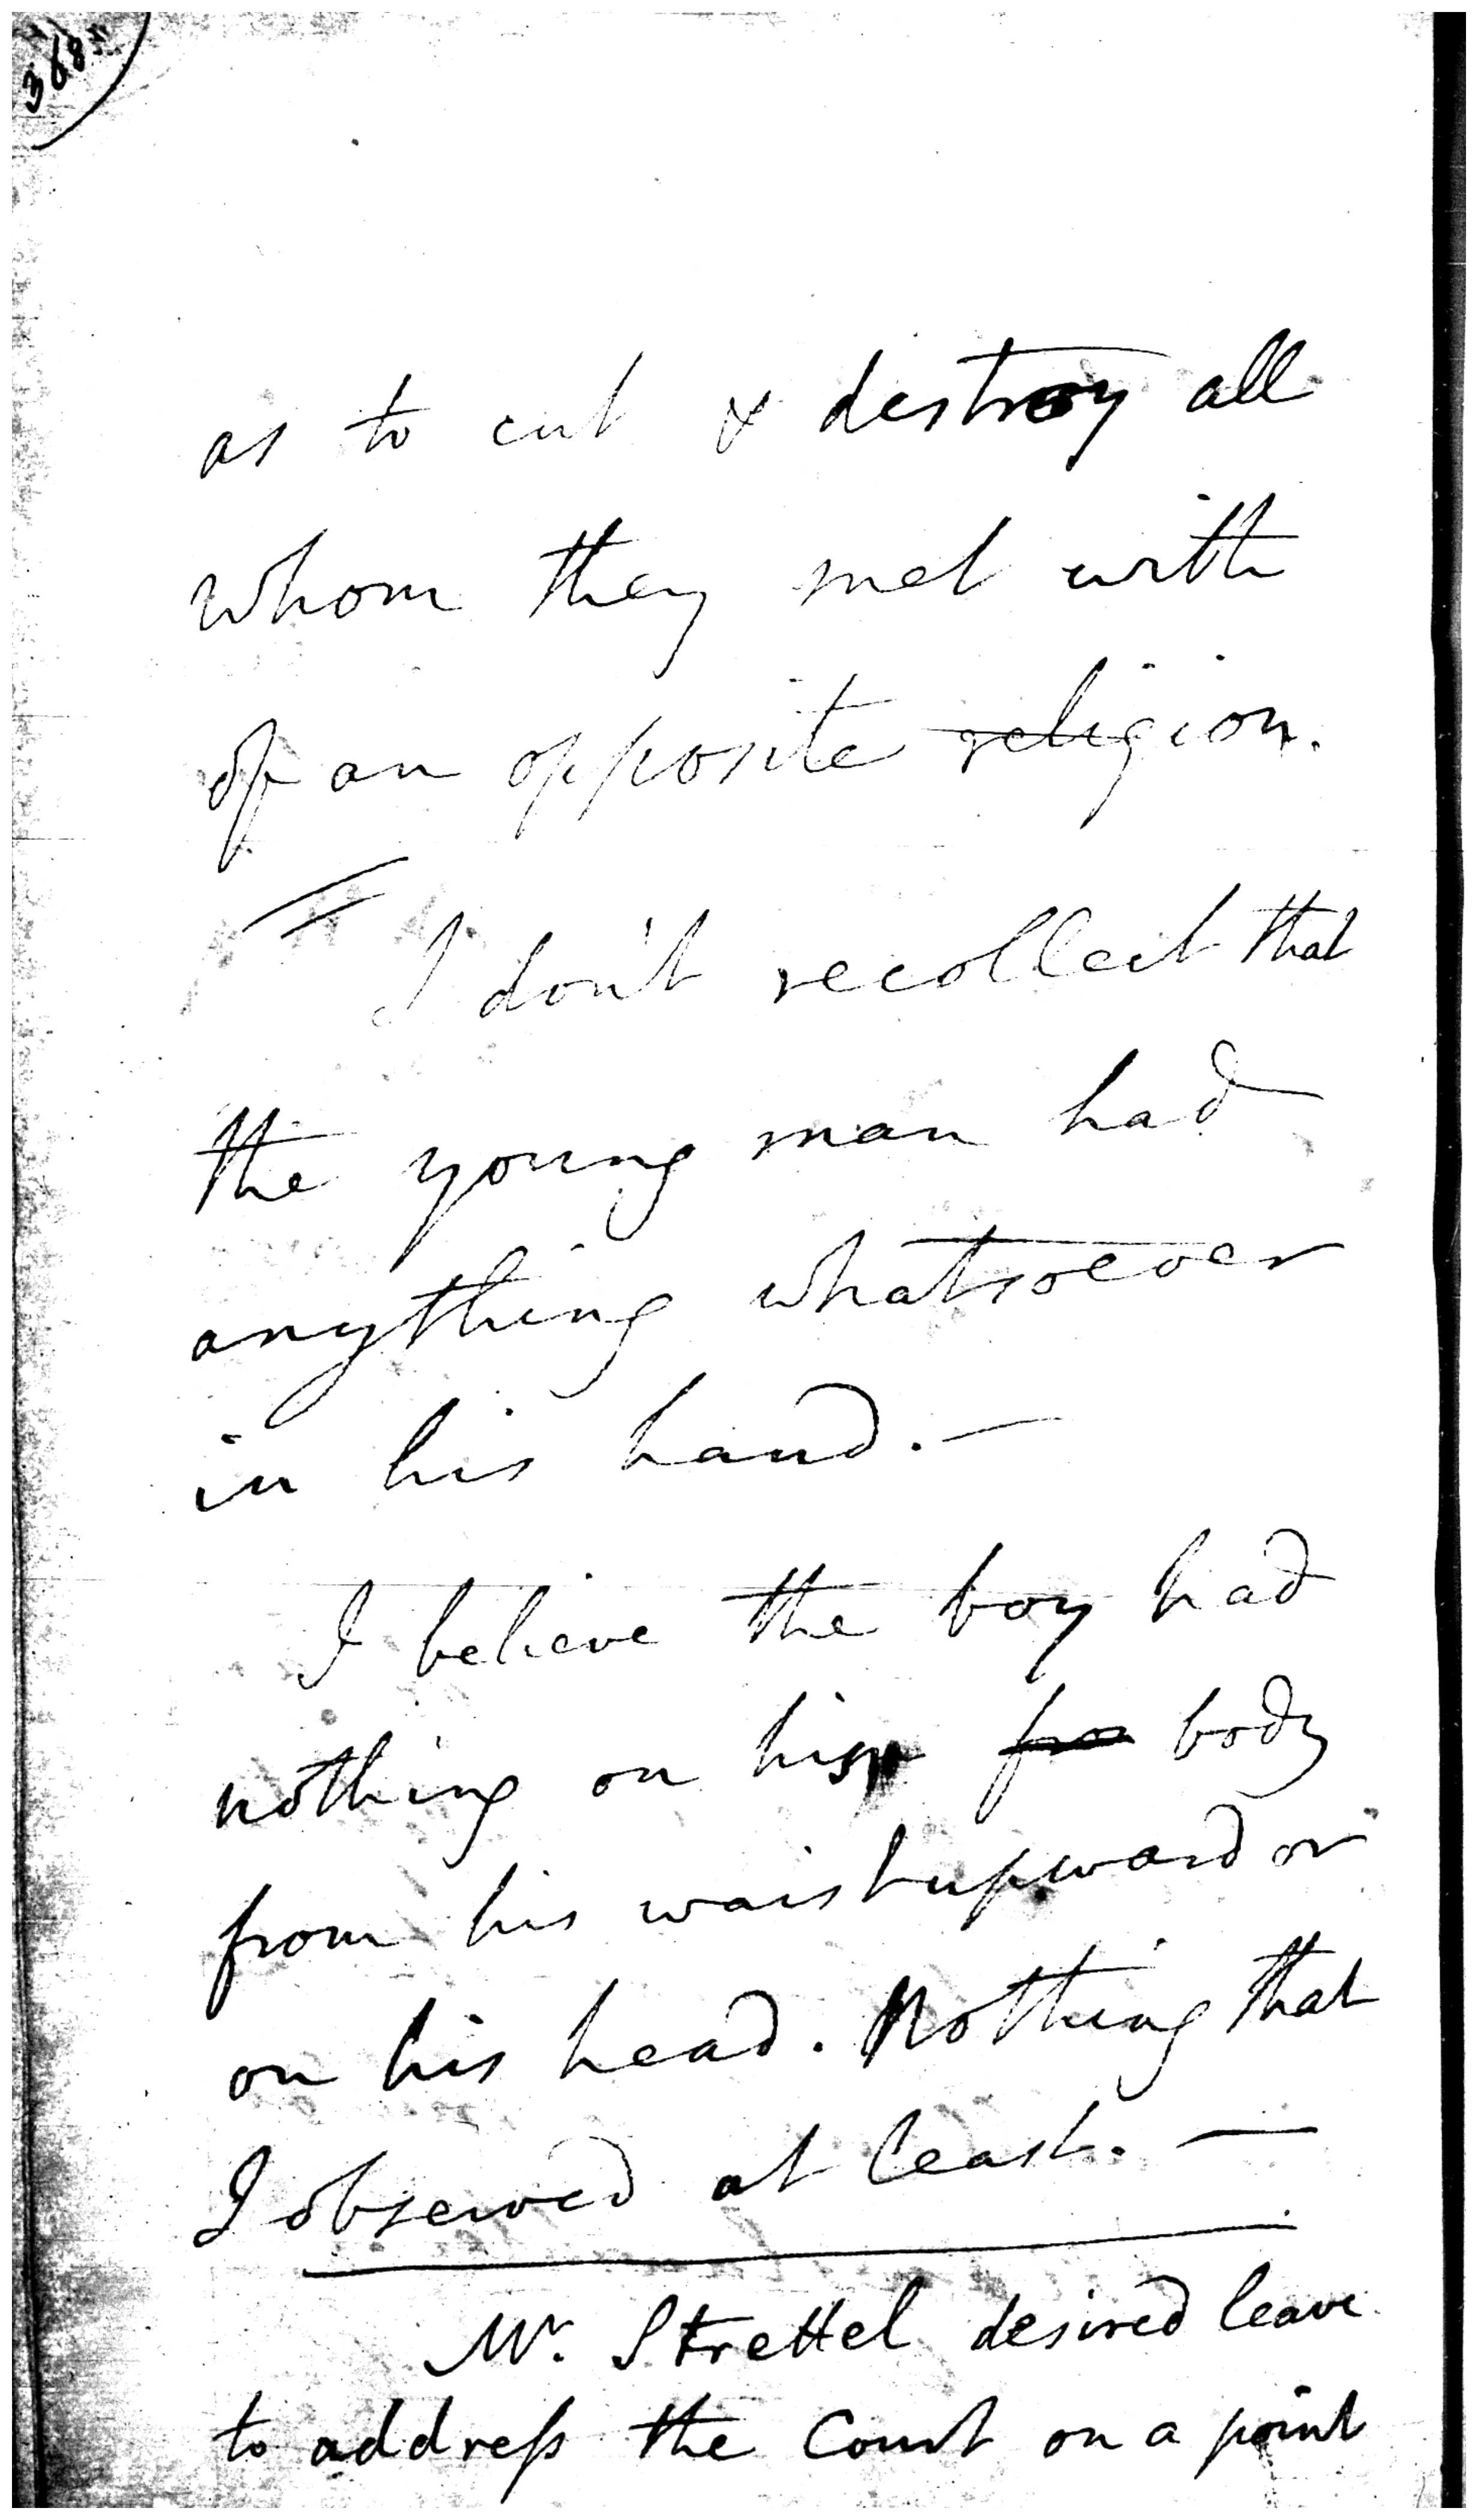 368
as to cut & destroy all
whom they met with
of an opposite religion.
I don't recollect that
the young man had
anything whatsoever
in his hand. —
I believe the boy had
nothing on his fro body
from his waist upward or
on his head. Nothing that
I observed at least. —
Mr. Strettel desired leave
to address the Court on a point